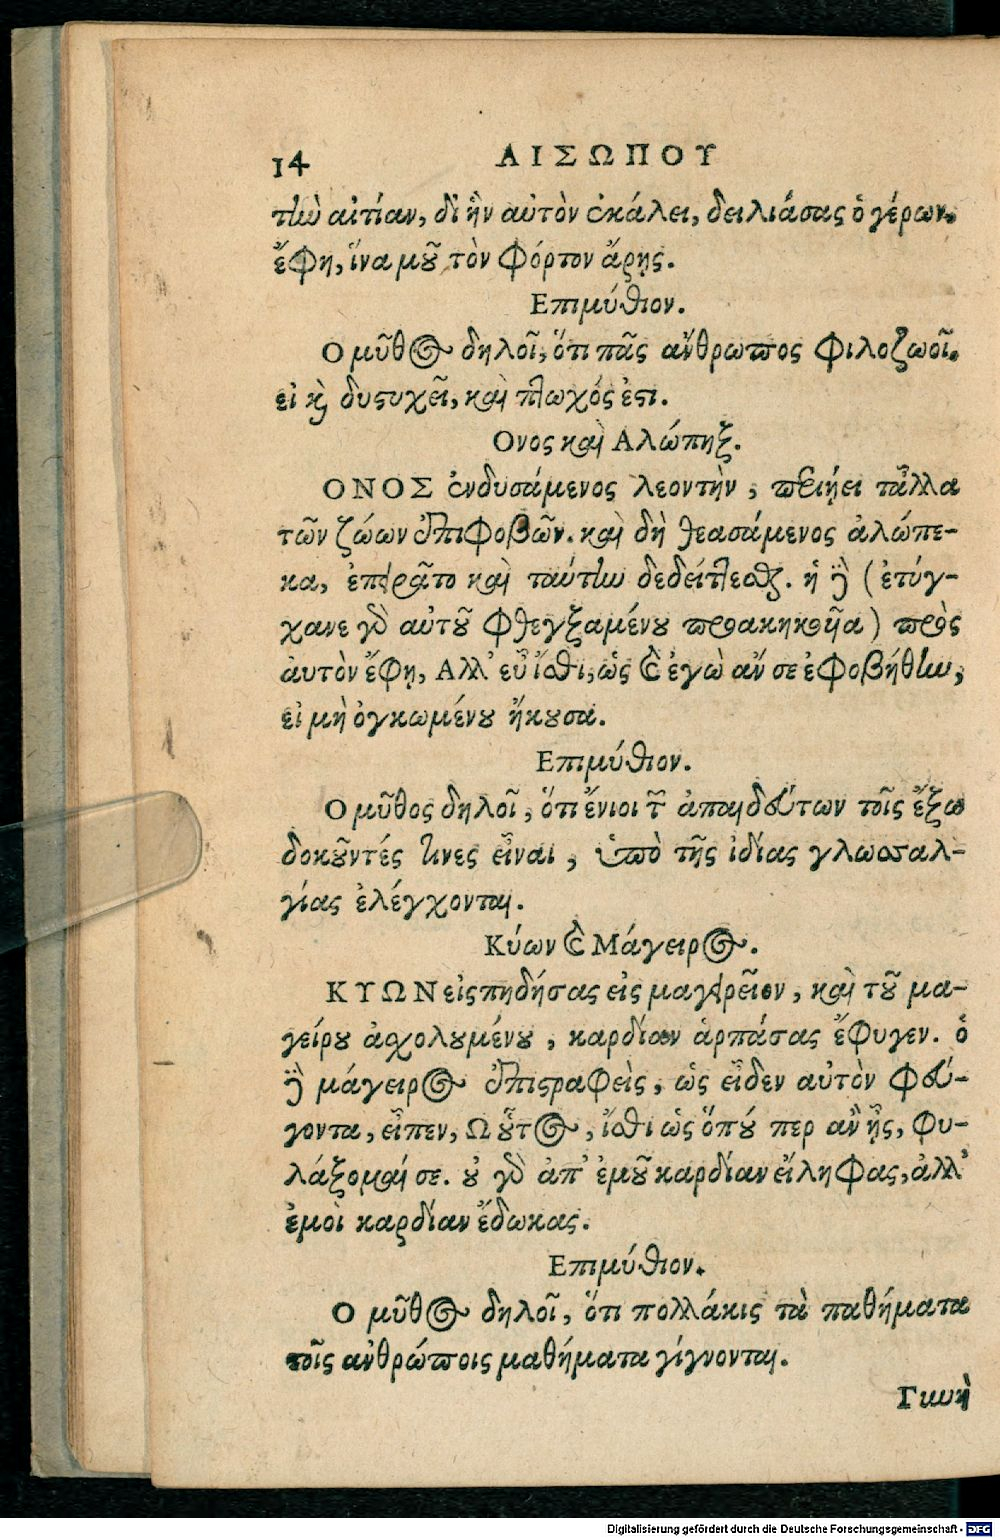 14 ΑΙΣΩΠΟΥ
τὴν αἰτίαν, δι' ἣν αὐτὸν ἐκάλει, δειλιάσας ὁ γέρων.
ἔφη, ἵνα μοῦ τὸν φόρτον ἄρῃς.
Επιμύθιον.
Ο μῦθος δηλοῖ, ὅτι πᾶς ἄνθρωπος φιλοζωοῖ.
εἰ καὶ δυςυχεῖ, καὶ πτωχός ἐστι.
Ονος καὶ Αλώπηξ.
ΟΝΟΣ ἐνδυσάμενος λεοντὴν, περιῄει τἆλλα
τῶν ζώων ἐπιφοβῶν. καὶ δὴ θεασάμενος ἀλώπε-
κα, ἐπειρᾶτο καὶ ταύτην δεδείττεσθαι. ἡ δὲ (ἐτύγ-
χανε γὰρ αὐτοῦ φθεγξαμένου προακηκουῖα) πρὸς
ἀυτὸν ἔφη, Αλλ' εὖ ἴσθι, ὡς καὶ ἐγὼ ἄν σε ἐφοβήθην,
εἰ μὴ ὀγκωμένου ἤκουσα.
Επιμύθιον.
Ο μῦθος δηλοῖ, ὅτι ἔνιοι τῶν ἀπαιδεύτων τοῖς ἔξω
δοκοῦντές τινες εἶναι, ὑπὸ τῆς ἰδίας γλωσσαλ-
γίας ἐλέγχονται.
Κύων καὶ Μάγειρος.
ΚΥΩΝ εἰςπηδήσας εἰς μαγειρεῖον, καὶ τοῦ μα-
γείρου ἀσχολουμένου, καρδίαν ἁρπάσας ἔφυγεν. ὁ
δὲ μάγειρος ἐπιστραφεὶς, ὡς εἶδεν αὐτὸν φεύ-
γοντα, εἶπεν, Ω οὗτος, ἴσθι ὡς ὅπού περ ἂν ᾖς, φυ-
λάξομαί σε. οὐ γὰρ ἀπ' ἐμοῦ καρδίαν εἴληφας, ἀλλ'
ἐμοὶ καρδίαν ἔδωκας.
Επιμύθιον.
Ο μῦθος δηλοῖ, ὅτι πολλάκις τὰ παθήματα
τοῖς ἀνθρώποις μαθήματα γίγνονται.
Γυνὴ
Digitalisierung gefördert durch die Deutsche Forschungsgemeinschaft - DFG